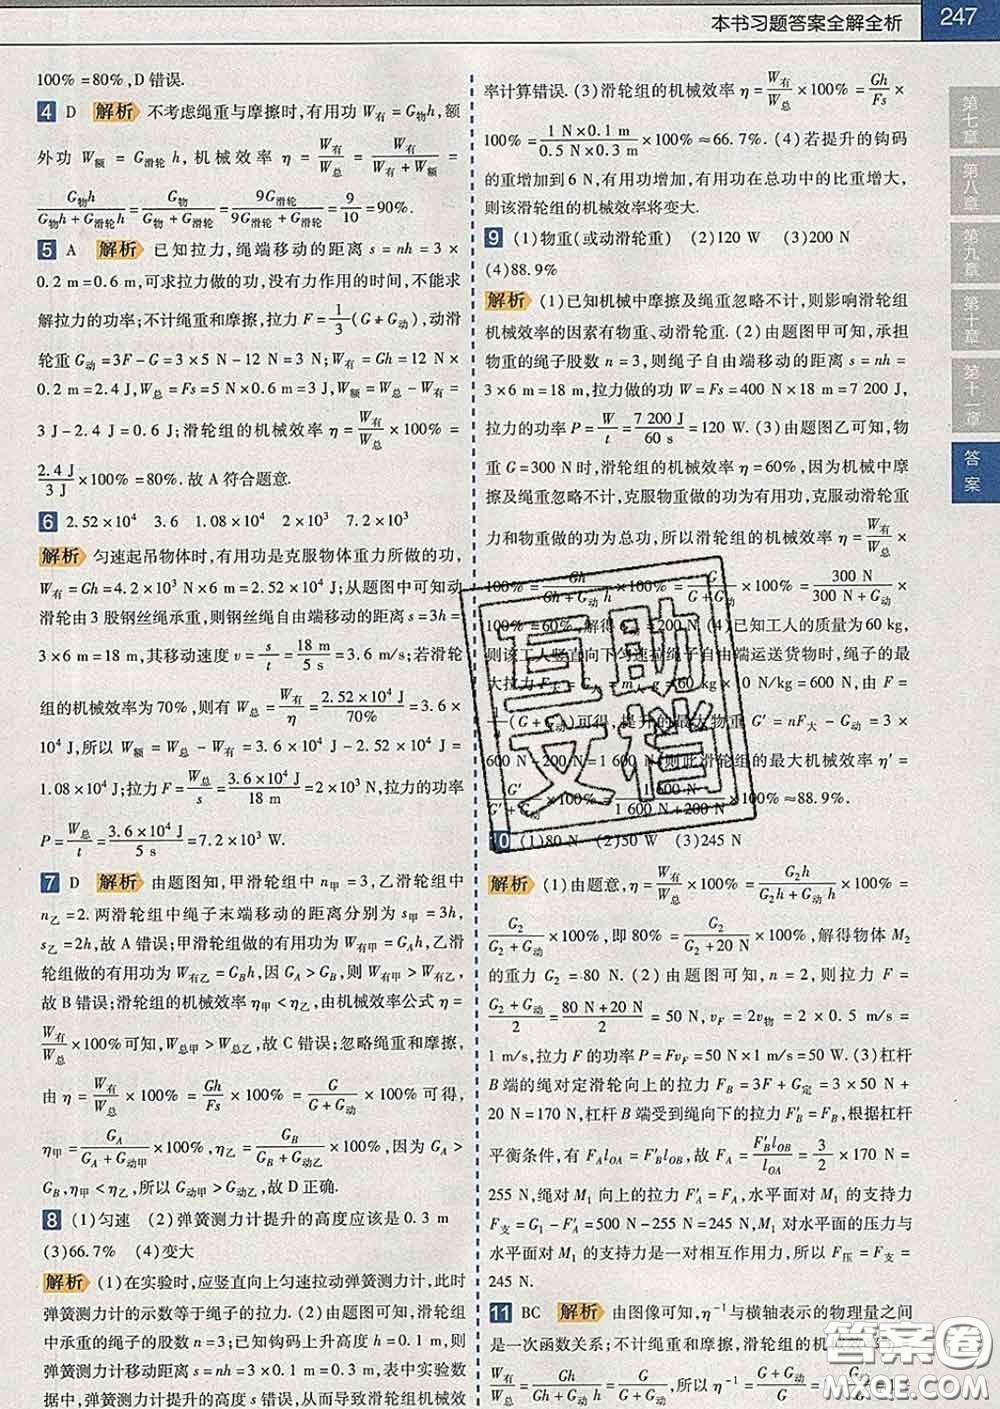 本书习题答案全解全析
247
100% = 80%, D 错误.
4 D 解析 不考虑绳重与摩擦时,有用功 W有 = G物h,额
外功 W额 = G滑轮 h, 机械效率 η = W有/W总 = W有/(W有 + W额) =
G物h/(G物h + G滑轮h) = G物/(G物 + G滑轮) = 9G滑轮/(9G滑轮 + G滑轮) = 9/10 = 90%.
5 A 解析 已知拉力,绳端移动的距离 s = nh = 3 ×
0.2 m = 0.6 m,可求拉力做的功,没有力作用的时间,不能求
解拉力的功率;不计绳重和摩擦,拉力 F = 1/3 (G + G动),动滑
轮重 G动 = 3F - G = 3 × 5 N - 12 N = 3 N; W有 = Gh = 12 N ×
0.2 m = 2.4 J, W总 = Fs = 5 N × 0.6 m = 3 J, W额 = W总 - W有 =
3 J - 2.4 J = 0.6 J;滑轮组的机械效率 η = W有/W总 × 100% =
2.4 J/3 J × 100% = 80%. 故 A 符合题意.
6 2.52×10⁴ 3.6 1.08×10⁴ 2×10³ 7.2×10³
解析 匀速起吊物体时,有用功是克服物体重力所做的功,
W有 = Gh = 4.2×10³ N×6 m = 2.52×10⁴ J;从题图中可知动
滑轮由 3 股钢丝绳承重,则钢丝绳自由端移动的距离 s = 3h =
3×6 m = 18 m,其移动速度 v = s/t = 18 m/5 s = 3.6 m/s;若滑轮
组的机械效率为 70%,则有 W总 = W有/η = 2.52×10⁴ J/70% = 3.6×
10⁴ J,所以 W额 = W总 - W有 = 3.6×10⁴ J - 2.52×10⁴ J =
1.08×10⁴ J;拉力 F = W总/s = 3.6×10⁴ J/18 m = 2×10³ N,拉力的功率
P = W总/t = 3.6×10⁴ J/5 s = 7.2×10³ W.
7 D 解析 由题图知,甲滑轮组中 n甲 = 3,乙滑轮组中
n乙 = 2. 两滑轮组中绳子末端移动的距离分别为 s甲 = 3h,
s乙 = 2h,故 A 错误;甲滑轮组做的有用功为 W有甲 = G_A h,乙滑
轮组做的有用功为 W有乙 = G_B h,因 G_A > G_B,则 W有甲 > W有乙,
故 B 错误;滑轮组的机械效率 η甲 < η乙,由机械效率公式 η =
W有/W总 × 100% 可知, W总甲 > W总乙,故 C 错误;忽略绳重和摩擦,
由 η = W有/W总 = Gh/Fs × 100% = G/(G + G动) × 100% 可得,
η甲 = G_A/(G_A + G动甲) × 100%, η乙 = G_B/(G_B + G动乙) × 100%,因为 G_A >
G_B, η甲 < η乙,所以 G动甲 > G动乙,故 D 正确.
8 (1)匀速 (2)弹簧测力计提升的高度应该是 0.3 m
(3)66.7% (4)变大
解析 (1)在实验时,应竖直向上匀速拉动弹簧测力计,此时
弹簧测力计的示数等于绳子的拉力. (2)由题图可知,滑轮组
中承重的绳子的股数 n = 3;已知钩码上升高度 h = 0.1 m,则
弹簧测力计移动距离 s = nh = 3×0.1 m = 0.3 m,表中实验数
据中,弹簧测力计提升的高度 s 错误,从而导致滑轮组机械效
率计算错误. (3)滑轮组的机械效率 η = W有/W总 × 100% = Gh/Fs ×
100% = (1 N×0.1 m)/(0.5 N×0.3 m) × 100% ≈ 66.7%. (4)若提升的钩码
的重增加到 6 N,有用功增加,有用功在总功中的比重增大,
则该滑轮组的机械效率将变大.
9 (1)物重(或动滑轮重) (2)120 W (3)200 N
(4)88.9%
解析 (1)已知机械中摩擦及绳重忽略不计,则影响滑轮组
机械效率的因素有物重、动滑轮重. (2)由题图甲可知,承担
物重的绳子股数 n = 3,则绳子自由端移动的距离 s = nh =
3×6 m = 18 m,拉力做的功 W = Fs = 400 N×18 m = 7 200 J,
拉力的功率 P = W/t = 7 200 J/60 s = 120 W. (3)由题图乙可知,物
重 G = 300 N 时,滑轮组的机械效率 η = 60%,因为机械中摩
擦及绳重忽略不计,克服物重做的功为有用功,克服动滑轮重
力和物重做的功为总功,所以滑轮组的机械效率 η = W有/W总 ×
100% = Gh/(Gh + G动 h) × 100% = G/(G + G动) × 100% = 300 N/(300 N + G动) ×
100% = 60%,解得 G动 = 200 N. (4)已知工人的质量为 60 kg,
则该工人竖直向下匀速拉绳子自由端运送货物时,绳子的最
大拉力 F大 = G人 = m人 g = 60 kg×10 N/kg = 600 N,由 F =
(G + G动)可得,提升的最大物重 G′ = nF大 - G动 = 3 ×
600 N - 200 N = 1 600 N,则此滑轮组的最大机械效率 η′ =
G′/(G′ + G动) × 100% = 1 600 N/(1 600 N + 200 N) × 100% ≈ 88.9%.
10 (1)80 N (2)50 W (3)245 N
解析 (1)由题意,η = W有/W总 × 100% = G₂h/(G₂h + G动 h) × 100% =
G₂/(G₂ + G动) × 100%,即 80% = G₂/(G₂ + 20 N) × 100%,解得物体 M₂
的重力 G₂ = 80 N. (2)由题图可知, n = 2,则拉力 F =
(G₂ + G动)/2 = (80 N + 20 N)/2 = 50 N, v_F = 2v物 = 2 × 0.5 m/s =
1 m/s,拉力 F 的功率 P = Fv_F = 50 N×1 m/s = 50 W. (3)杠杆
B 端的绳对定滑轮向上的拉力 F_B = 3F + G定 = 3 × 50 N +
20 N = 170 N,杠杆 B 端受到绳向下的拉力 F′_B = F_B,根据杠杆
平衡条件,有 F_A l_OA = F′_B l_OB,故 F_A = F′_B l_OB/l_OA = 3/2 × 170 N =
255 N,绳对 M₁ 向上的拉力 F′_A = F_A,水平面对 M₁ 的支持力
F支 = G₁ - F′_A = 500 N - 255 N = 245 N, M₁ 对水平面的压力与
水平面对 M₁ 的支持力是一对相互作用力,所以 F压 = F支 =
245 N.
11 BC 解析 由图像可知,η⁻¹ 与横轴表示的物理量之间
是一次函数关系;不计绳重和摩擦,滑轮组的机械效率 η =
W有/W总 = Gh/(Gh + G动 h) = G/(G + G动),所以 η⁻¹ = (G + G动)/G =
第七章
第八章
第九章
第十章
第十一章
答案
互助
文档
答案圈
MXQE.COM